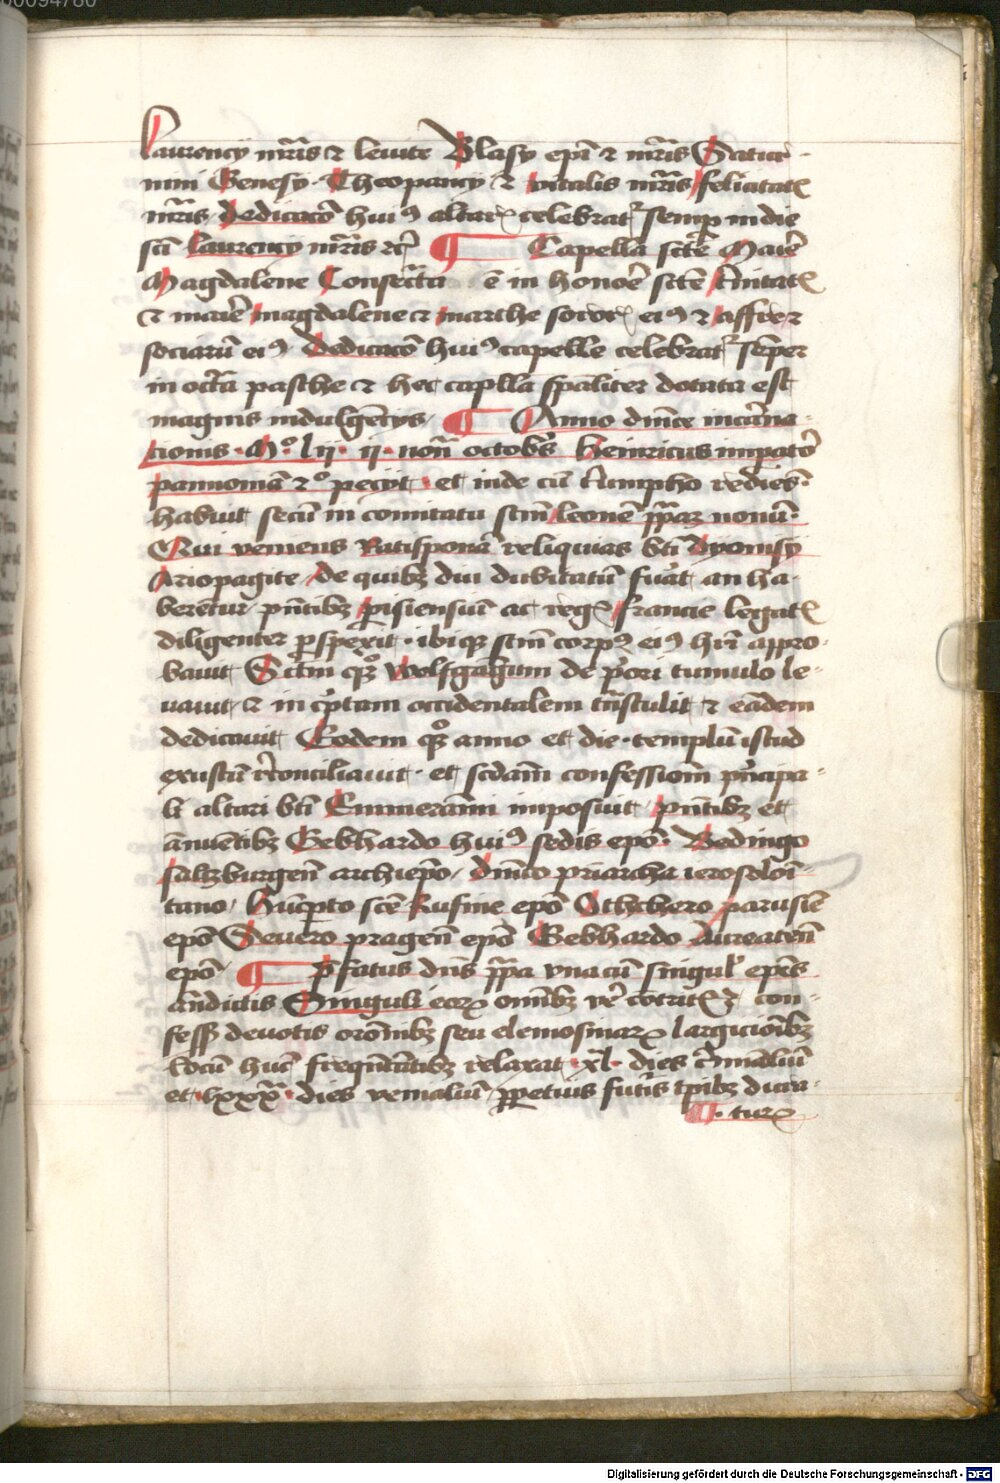 00094780
Laurency mris et leuite Blasy epi et mris Satur-
nini Genesy Theopancy et vitalis mris felicitatis
mris dedicaco huius altaris celebratur semp in die
sci Laurency mris etc Capella scte Marie
Magdalene Consecrata e in honore scte trinitatis
et marie magdalene et marthe sororis eius et affre et
sociarum eius Dedicaco huius capelle celebratur semper
in octa pasche et hec caplla spaliter dotata est
magnis indulgencys Anno dnice incarna-
tionis Mo lii ii non octobris Heinricus impator
pannoniam 2o pecyt et inde cum triumpho rediens
habuit secum in comitatu scm leonem papam nonum
Qui veniens Ratisponam reliquias bti dyonisy
Ariopagite de quibus diu dubitatum fuat an ha-
berentur pntibus parisiensium ac regis francie legatis
diligenter perspexit ibique scm corpus eius hri appro-
bauit Sctm quoque Wolfgangum de priori tumulo le-
uauit et in criptam occidentalem transtulit et eadem
dedicauit Eodem quoque anno et die templum istud
exustum reconciliauit et scdam confessionem principa-
li altari bti Emmerammi imposuit pntibus et
annuentibus Gebhardo huius sedis epo Bedingo
saltzburgen archiepo dnico priarcha ierosoloi-
tano Humperto scte Rufine epo Othchero parusie
epo Seuero pragen epo Gebhardo Aureaten
epo pfatus dns papa vna cum singulis epis
andictis Singuli eorum omnibus vere contritis et con-
fessis deuotis oronibus seu elemosinarum largicionibus
locum hunc frequentantibus relaxat xl dies criminalium
et lxxx dies venialium perpetuis futuris tpibus dura-
turis
Digitalisierung gefördert durch die Deutsche Forschungsgemeinschaft - DFG